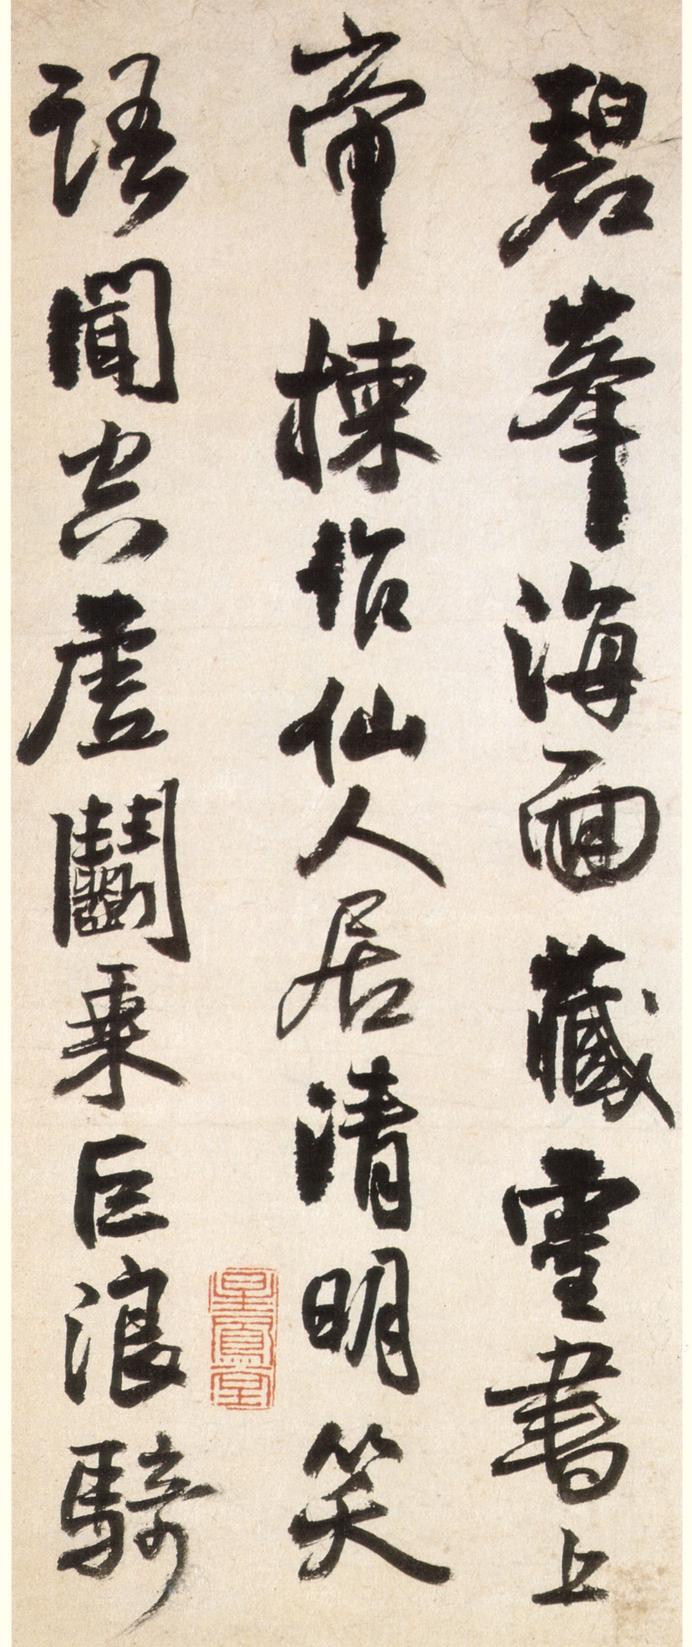 碧峯海面藏靈書上
帝揀作仙人居清明笑
語聞空虛鬭乗巨浪騎